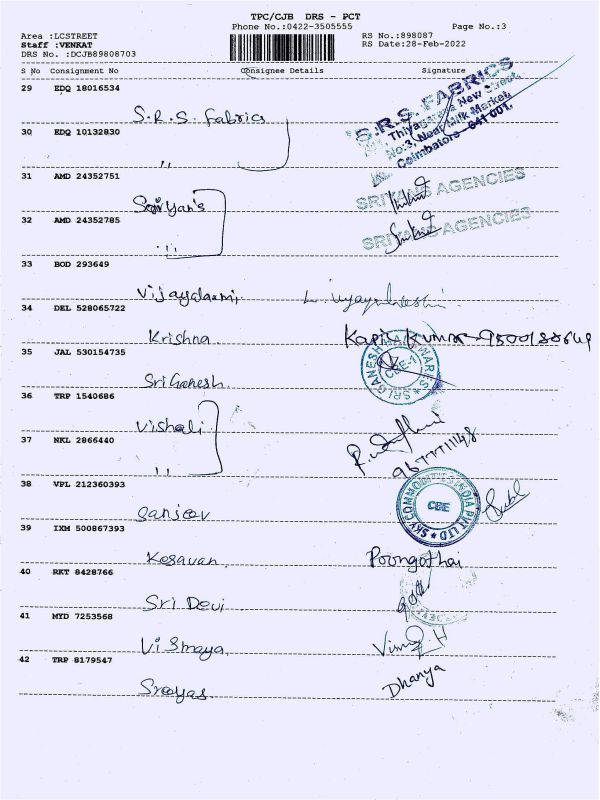 TPC/CJB DRS - PCT
Phone No.:0422-3505555
Page No.:3
Area :LCSTREET
RS No.:898087
Staff :VENKAT
RS Date:28-Feb-2022
DRS No. :DCJB89808703
S No Consignment No Consignee Details Signature
29 EDQ 18016534
S.R.S. Fabrics
S.R.S. FABRICS
Thiyagaraja New Street,
No:3, Near Milk Market,
Coimbatore - 641 001.
30 EDQ 10132830
,,
31 AMD 24352751
SRIYANS AGENCIES
32 AMD 24352785
,,
SRIYANS AGENCIES
33 BOD 293649
Vijayalaxmi
34 DEL 528065722
Krishna
Kapil Kumar
35 JAL 530154735
Sri Ganesh
SRI GANESH HARDWARES
CBE-1
36 TRP 1540686
Vishali
37 NKL 2866440
,,
38 VPL 212360393
Sanjeev
SKY COMMODITIES INDIA PVT LTD
CBE
39 IXM 500867393
Kesavan
Poongothai
40 RKT 8428766
Sri Devi
41 MYD 7253568
Vismaya
42 TRP 8179547
Sreyas
Dhanya